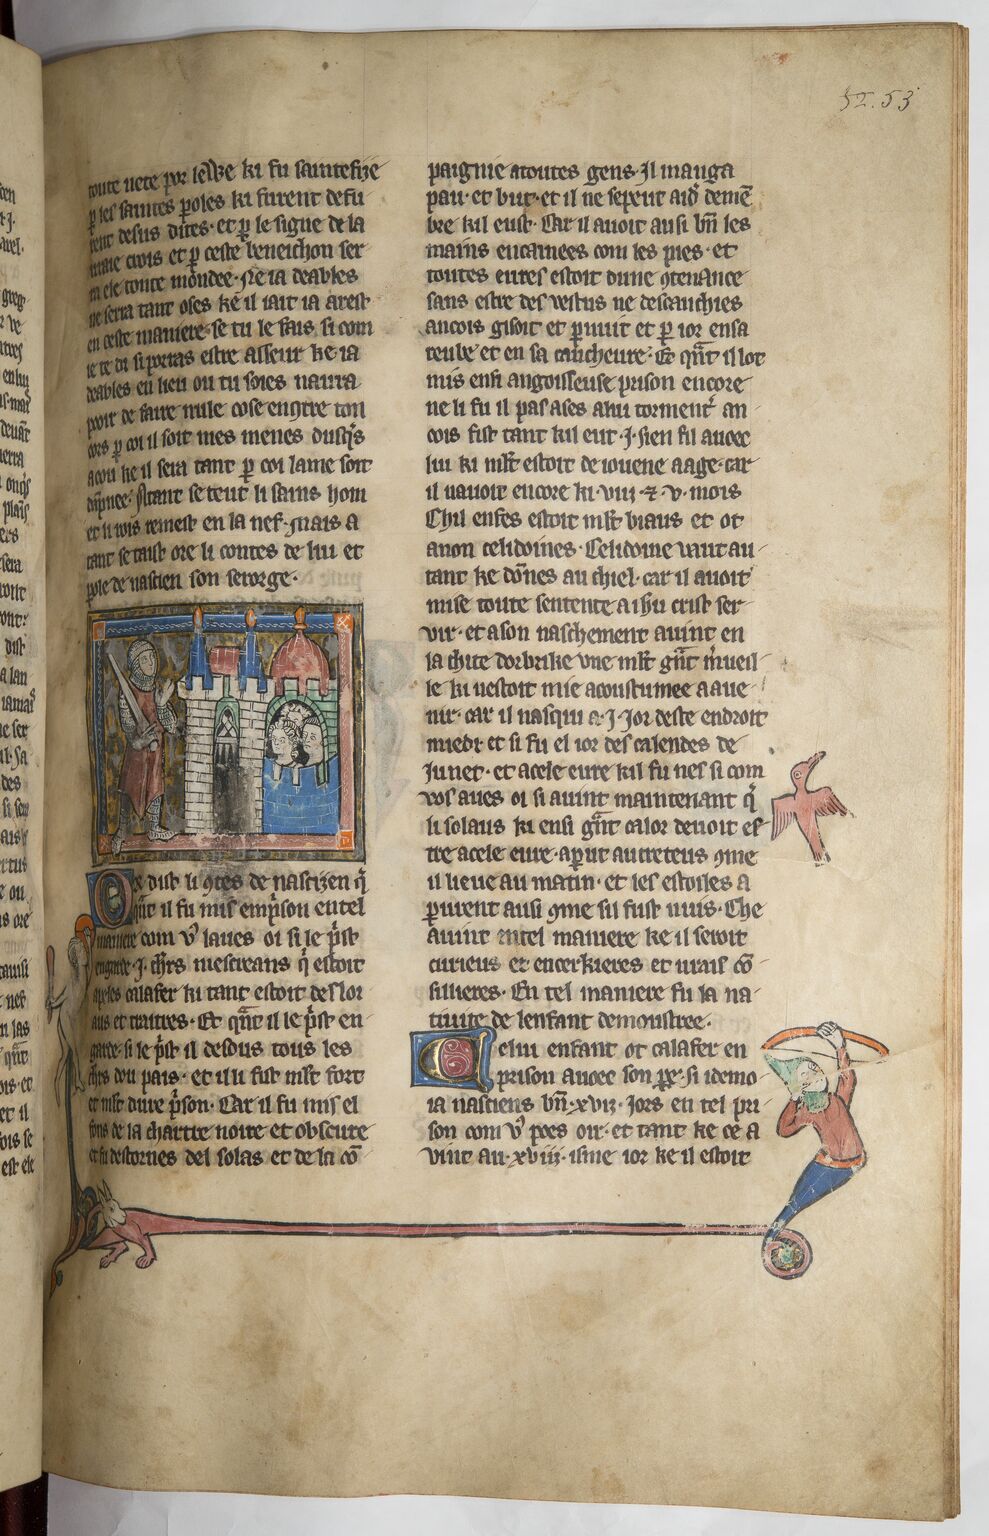 52.53
toute uete por leWe ki fu saintefije
p les saintes poles ki furent defu
rent desus dites. et p le signe de la
uraie crois et p ceste beneichon ser
ra ele toute mondee. Ne ia deables
ne serra tant oses ke il iait ia arest
en ceste maniere. se tu le fais si com
ie te di si porras estre asseur ke ia
deables en lieu ou tu soies naura
pooir de faire nule cose enqtre ton
cors p coi il soit mes menes dusqs
acou ke il sera tant p coi lame soit
dāpnee. Atant se teut li sains hom
et li rois remest en la nef. Mais a
tant se taist ore li contes de lui et
pole de nastien son serorge.
Or dist li 9tes de nastijen q̄
q̄nt il fu mis emp̄son en tel
maniere com v9 laues oi si le p̄st
engarde .j. chrs mescreans q̄ estoit
apeles calafer ki tant estoit desloi
aus et traitres. Et q̄nt il le p̄st en
garde. si le p̄st il desous tous les
chrs dou pais. et il li fist m̄lt fort
et m̄lt dure p̄son. Car il fu mis el
fons de la chartre noire et obscure
et fu destornes del solas et de la cō
paignie atoutes gens. Il manga
pau. et but. et il ne sepeut aid̄ demē
bre kil eust. Car il auoit ausi bn̄ les
mains encainees com les pies. et
toutes eures estoit dune 9tenance
sans estre des vestus ne descauchies
ancois gisoit et p nuit et p ior ensa
reube et en sa caucheure. Et q̄nt il lot
mis ensi angoisseuse prison encore
ne li fu il pas ases a lui torment an
cois fist tant kil eut .j. sien fil auoec
lui ki m̄lt estoit de iouene aage. car
il nauoit encore ki .vij. ⁊ .v. mois
Chil enfes estoit m̄lt biaus et ot
anon celidoines. Celidoine vaut au
tant ke dōnes au chiel. car il auoit
mise toute sentente a ihu crist ser
vir. et a son naschement auint en
la chite dorbrike vne m̄lt ḡnt m̄ueil
le ki nestoit mie acoustumee a aue
nir. car il nasqui a .j. ior deste endroit
miedi et si fu el ior des calendes de
Junet. et acele eure kil fu nes si com
vos aues oi si auint maintenant q̄
li solaus ki ensi ḡnt calor deuoit es
tre acele eure. aparut autreteus 9me
il lieue au matin. et les estoiles a
purent ausi 9me sil fust nuis. Che
auint entel maniere ke il seroit
curieus et encerkieres et urais cō
sillieres. En tel maniere fu la na
tiuite de lenfant demoustree.
Celui enfant ot calafer en
prison auoec son pe. si idemo
ra nasciens bn̄ .xvij. iors en tel pri
son com v9 poes oir. et tant ke ce a
vint au .xviij. isme ior ke il estoit